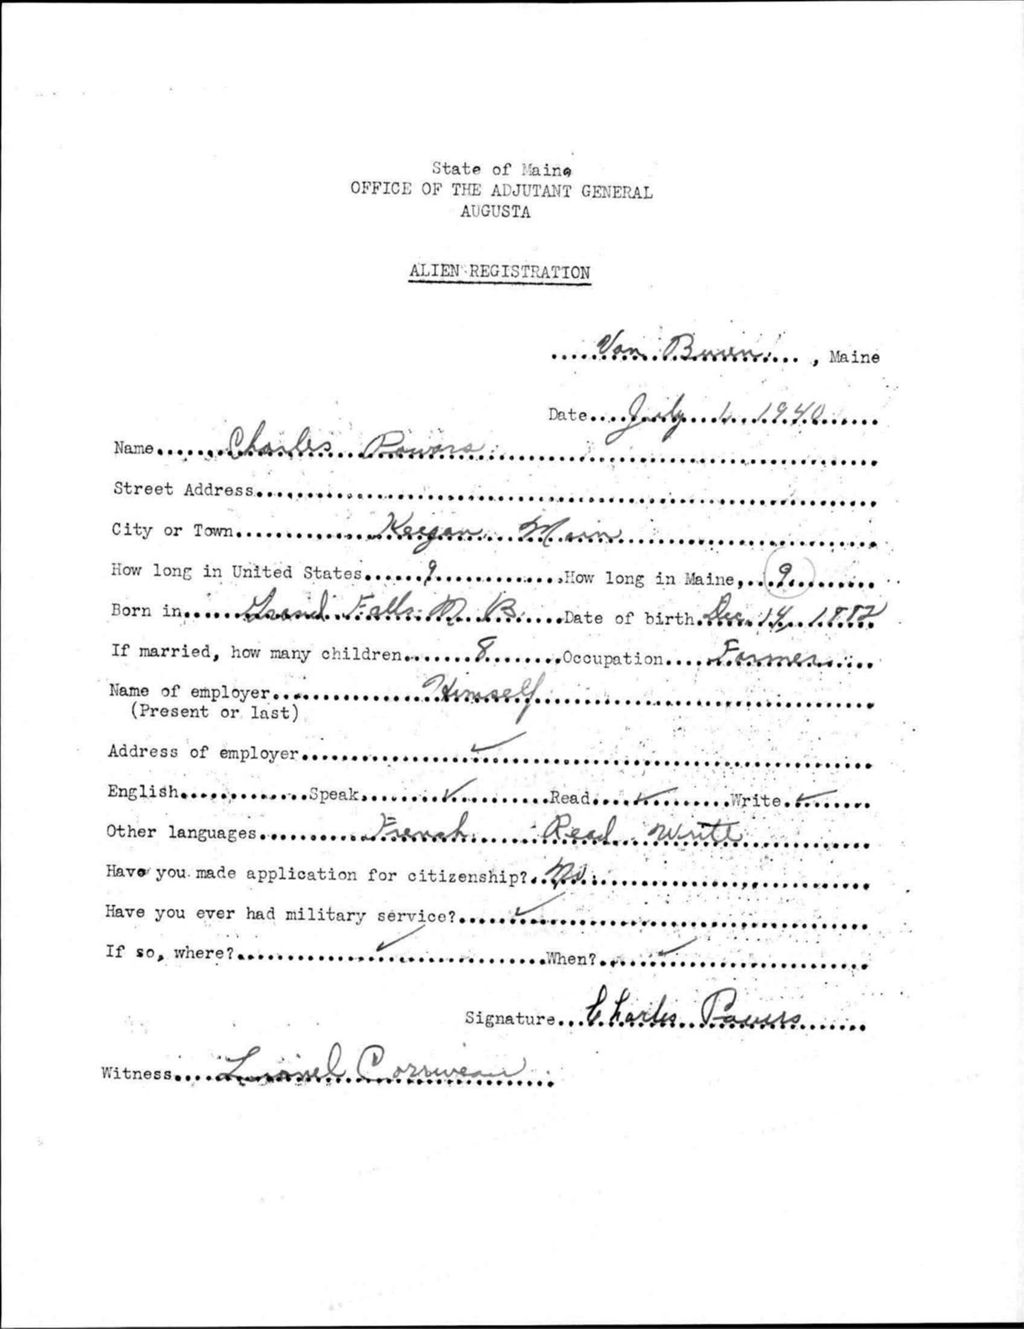 State of Maine
OFFICE OF THE ADJUTANT GENERAL
AUGUSTA
ALIEN REGISTRATION
Van Buren, Maine
Date July 1, 1940
Name Charles Powers
Street Address
City or Town Keegan Main
How long in United States 9 How long in Maine, 9
Born in Grand Falls N. B. Date of birth Dec. 14, 1882
If married, how many children 8 Occupation Farmer
Name of employer Himself
(Present or last)
Address of employer ✓
English Speak ✓ Read ✓ Write ✓
Other languages French Read Write
Have you made application for citizenship? No
Have you ever had military service? ✓
If so, where? ✓ When? ✓
Signature Charles Powers
Witness Lionel Corriveau